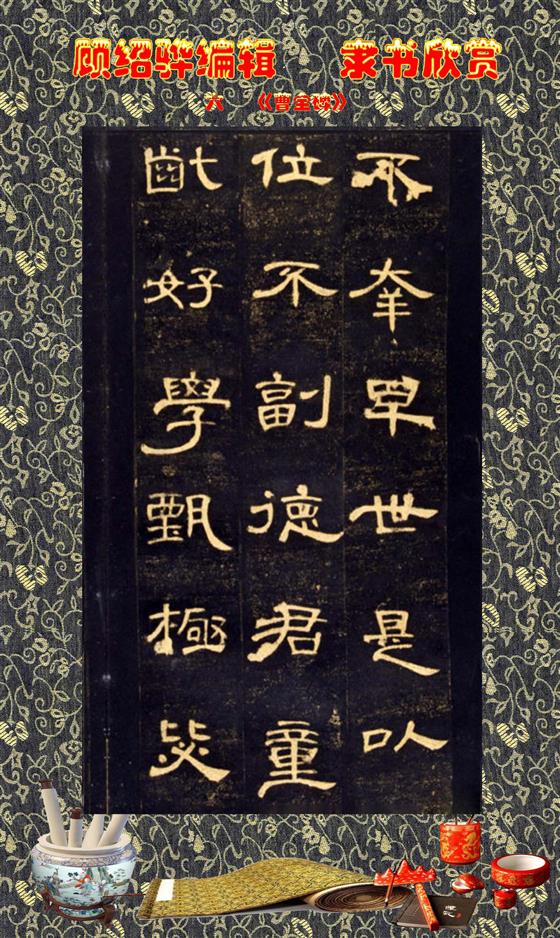 顾绍骅编辑 隶书欣赏
六 《曹全碑》
不幸早世是以
位不副德君童
齔好學甄極毖